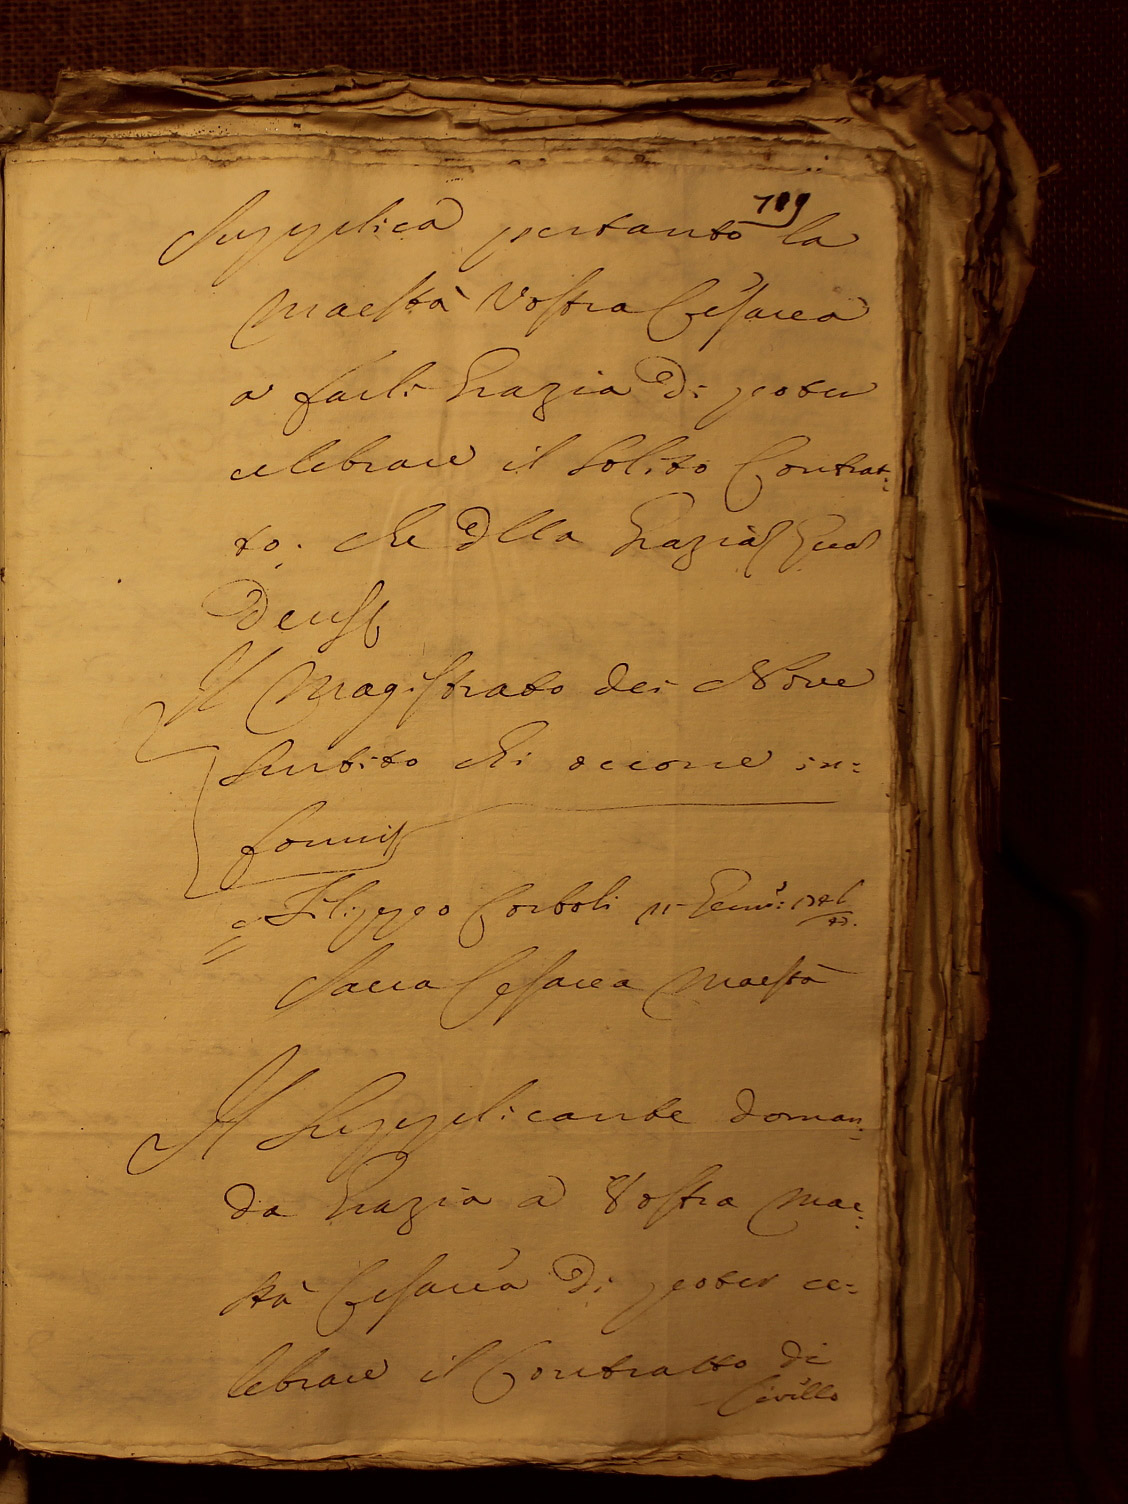 719
Supplica pertanto la
Maestà Vostra Cesarea
a farli Grazia di poter
celebrare il solito Contrat:
to: che della Grazia Quas
Deus
Il Magistrato dei Nove
sentito chi occorre in:
formi
Filippo Corboli
Sacra Cesarea Maestà
Il Supplicante doman:
da Grazia a Vostra Mae:
stà Cesarea di poter ce:
lebrare il Contratto di
Civillo